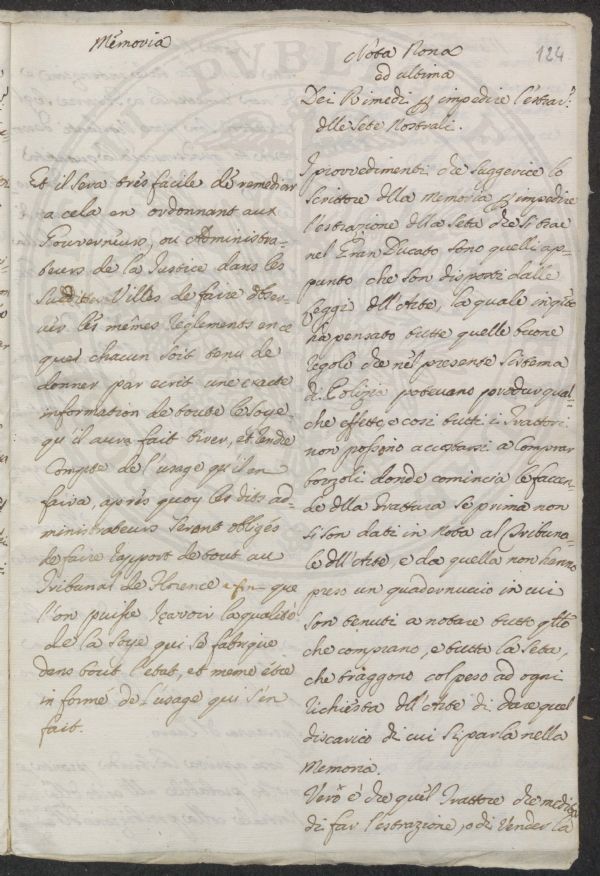 Mémoria
Et il sera très facile de remedier
a cela en ordonnant aux
Gouverneurs, ou Administra-
teurs de la Justice dans les
Susdittes Villes de faire obser-
ver les mêmes Reglements en ce
que chacun soit tenu de
donner par ecrit une exacte
information de toute la Soye
qu'il aura fait tirer, et rende
Compte de l'usage qu'il en
faira, après quoy les dits ad-
ministrateurs seront obligés
de faire raport de tout au
Tribunal de Florence afin que
l'on puisse sçavoir la qualité
de la Soye qui se fabrique
dans tout l'etat, et meme être
informé de l'usage qui s'en
fait.
124
Nota Nona
ed ultima
Dei Rimedj p impedire l'estraz.e
dlle Sete Nostrali.
I provvedimenti che suggerisce lo
Scrittore dlla Memoria p impedire
l'estrazione dlla Seta che si trae
nel Gran Ducato sono quelli ap-
punto che son disposti dalle
Leggi dll'Arte, la quale in q.to
ha pensato tutte quelle buone
regole che nel presente Sistema
di Polizia potevano produr qual-
che effetto, e così tutti i Trattori
non possono accostarsi a Comprar
bozzoli donde comincia le faccen-
de dlla Trattura se prima non
si son dati in Nota al Tribuna-
le dll'Arte, e da quella non hanno
preso un quadernuccio in cui
son tenuti a notare tutto q.llo
che comprano, e tutta la Seta,
che traggono col peso ad ogni
richiesta dll'Arte di dare quel
discarico di cui si parla nella
Memoria.
Vero è che quel Trattore che medita
di far l'estrazione, o di Vender la